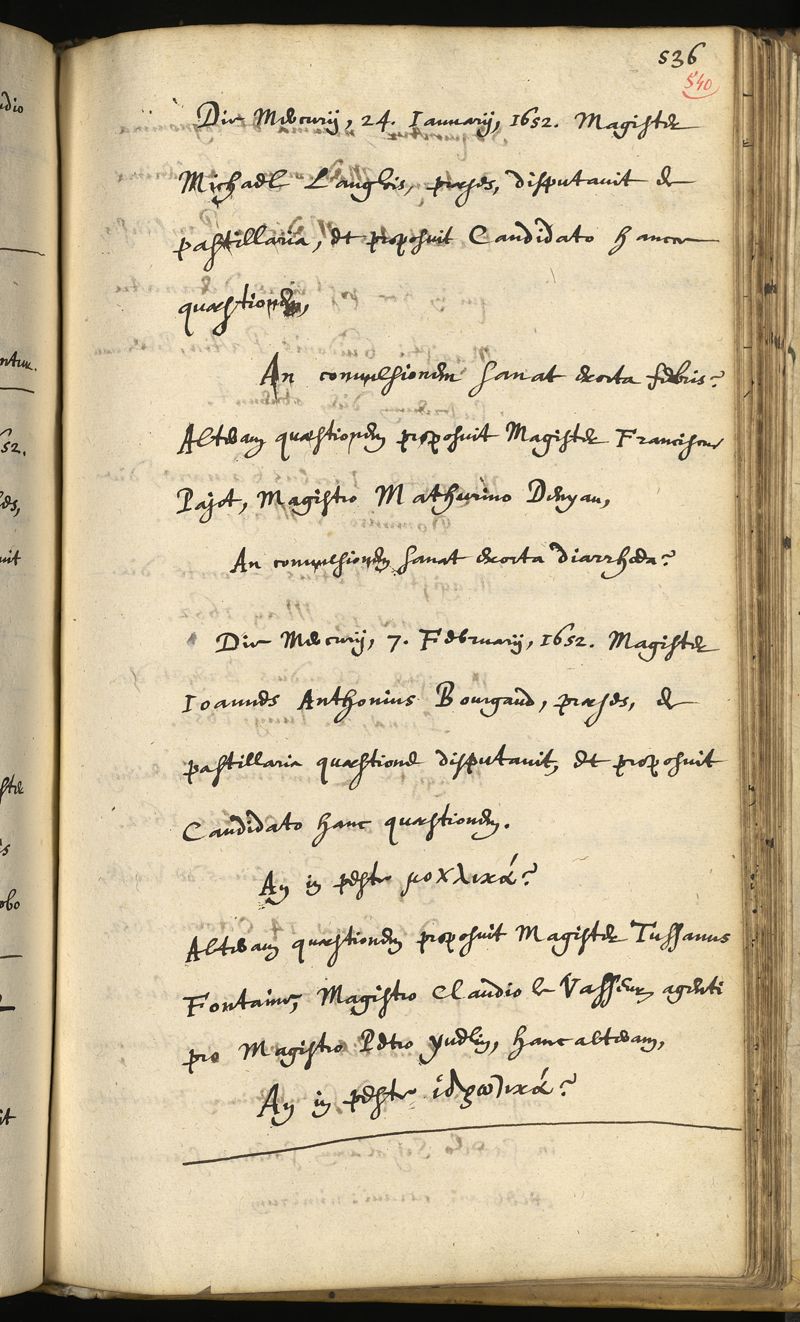 536
540
Die Mercurij, 24. Ianuarij, 1652. Magister
Michael Langlois, præses, disputauit de
pastillaria, et proposuit Candidato hance
quæstionem,
An conuulsionem sanat exorta febris?
Alteram quæstionem proposuit Magister Franciscus
Pajot, Magistro Mathurino Denyau,
An conuulsionem sanat exorta diarrhœa?
Die Mercurij, 7. Februarij, 1652. Magister
Ioannes Anthonius Bourgaud, præses, de
pastillaria quæstione disputauit, et proposuit
Candidato hanc quæstionem.
An in peste μοχλικά?
Alteram quæstionem proposuit Magister Tussanus
Fontaine, Magistro Claudio le Vasseur, agenti
pro Magistro Petro yuelin, hanc alteram,
An in peste ἱδρωτικά?